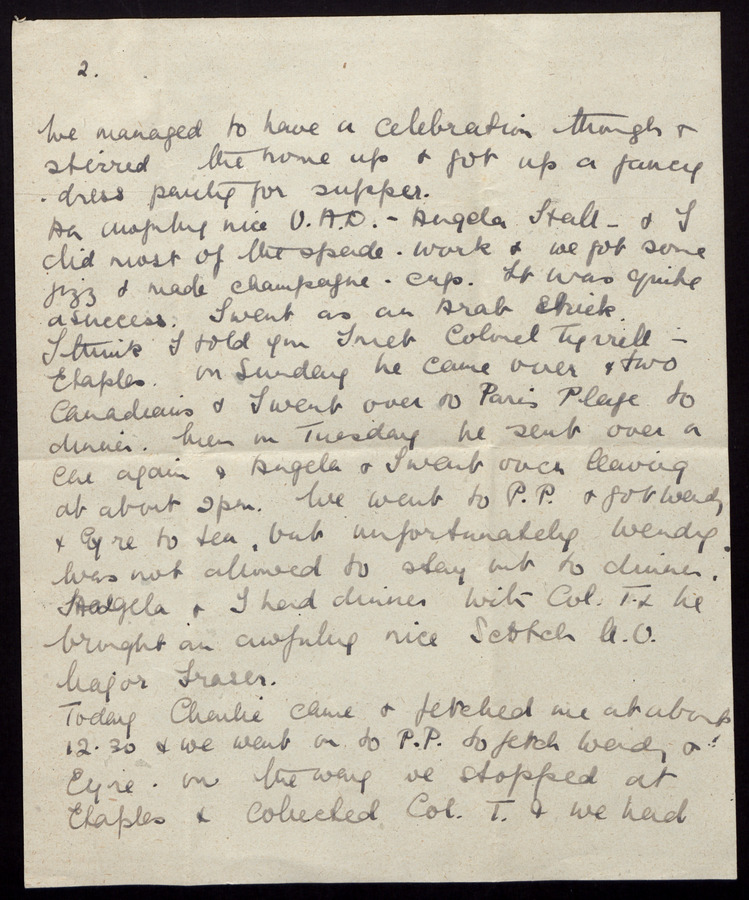 2.
We managed to have a celebration though &
stirred the home up & got up a fancy
dress party for supper.
An awfully nice V.A.D. - Angela Stall - & I
did most of the spade-work & we got some
fizz & made champagne-cup. It was quite
a success. I went as an Arab Sheik.
I think I told you I met Colonel Tyrrell -
Etaples. On Sunday he came over & two
Canadians & I went over to Paris Plage to
dinner. Then on Tuesday he sent over a
car again & Angela & I went over leaving
at about 2pm. We went to P.P. & got Wendy
& Eyre to tea, but unfortunately Wendy
was not allowed to stay out to dinner.
Angela & I had dinner with Col. T. & he
brought an awfully nice Scotch M.O.
Major Fraser.
Today Charlie came & fetched me at about
12.30 & we went on to P.P. to fetch Wendy &
Eyre. On the way we stopped at
Etaples & collected Col. T. & we had